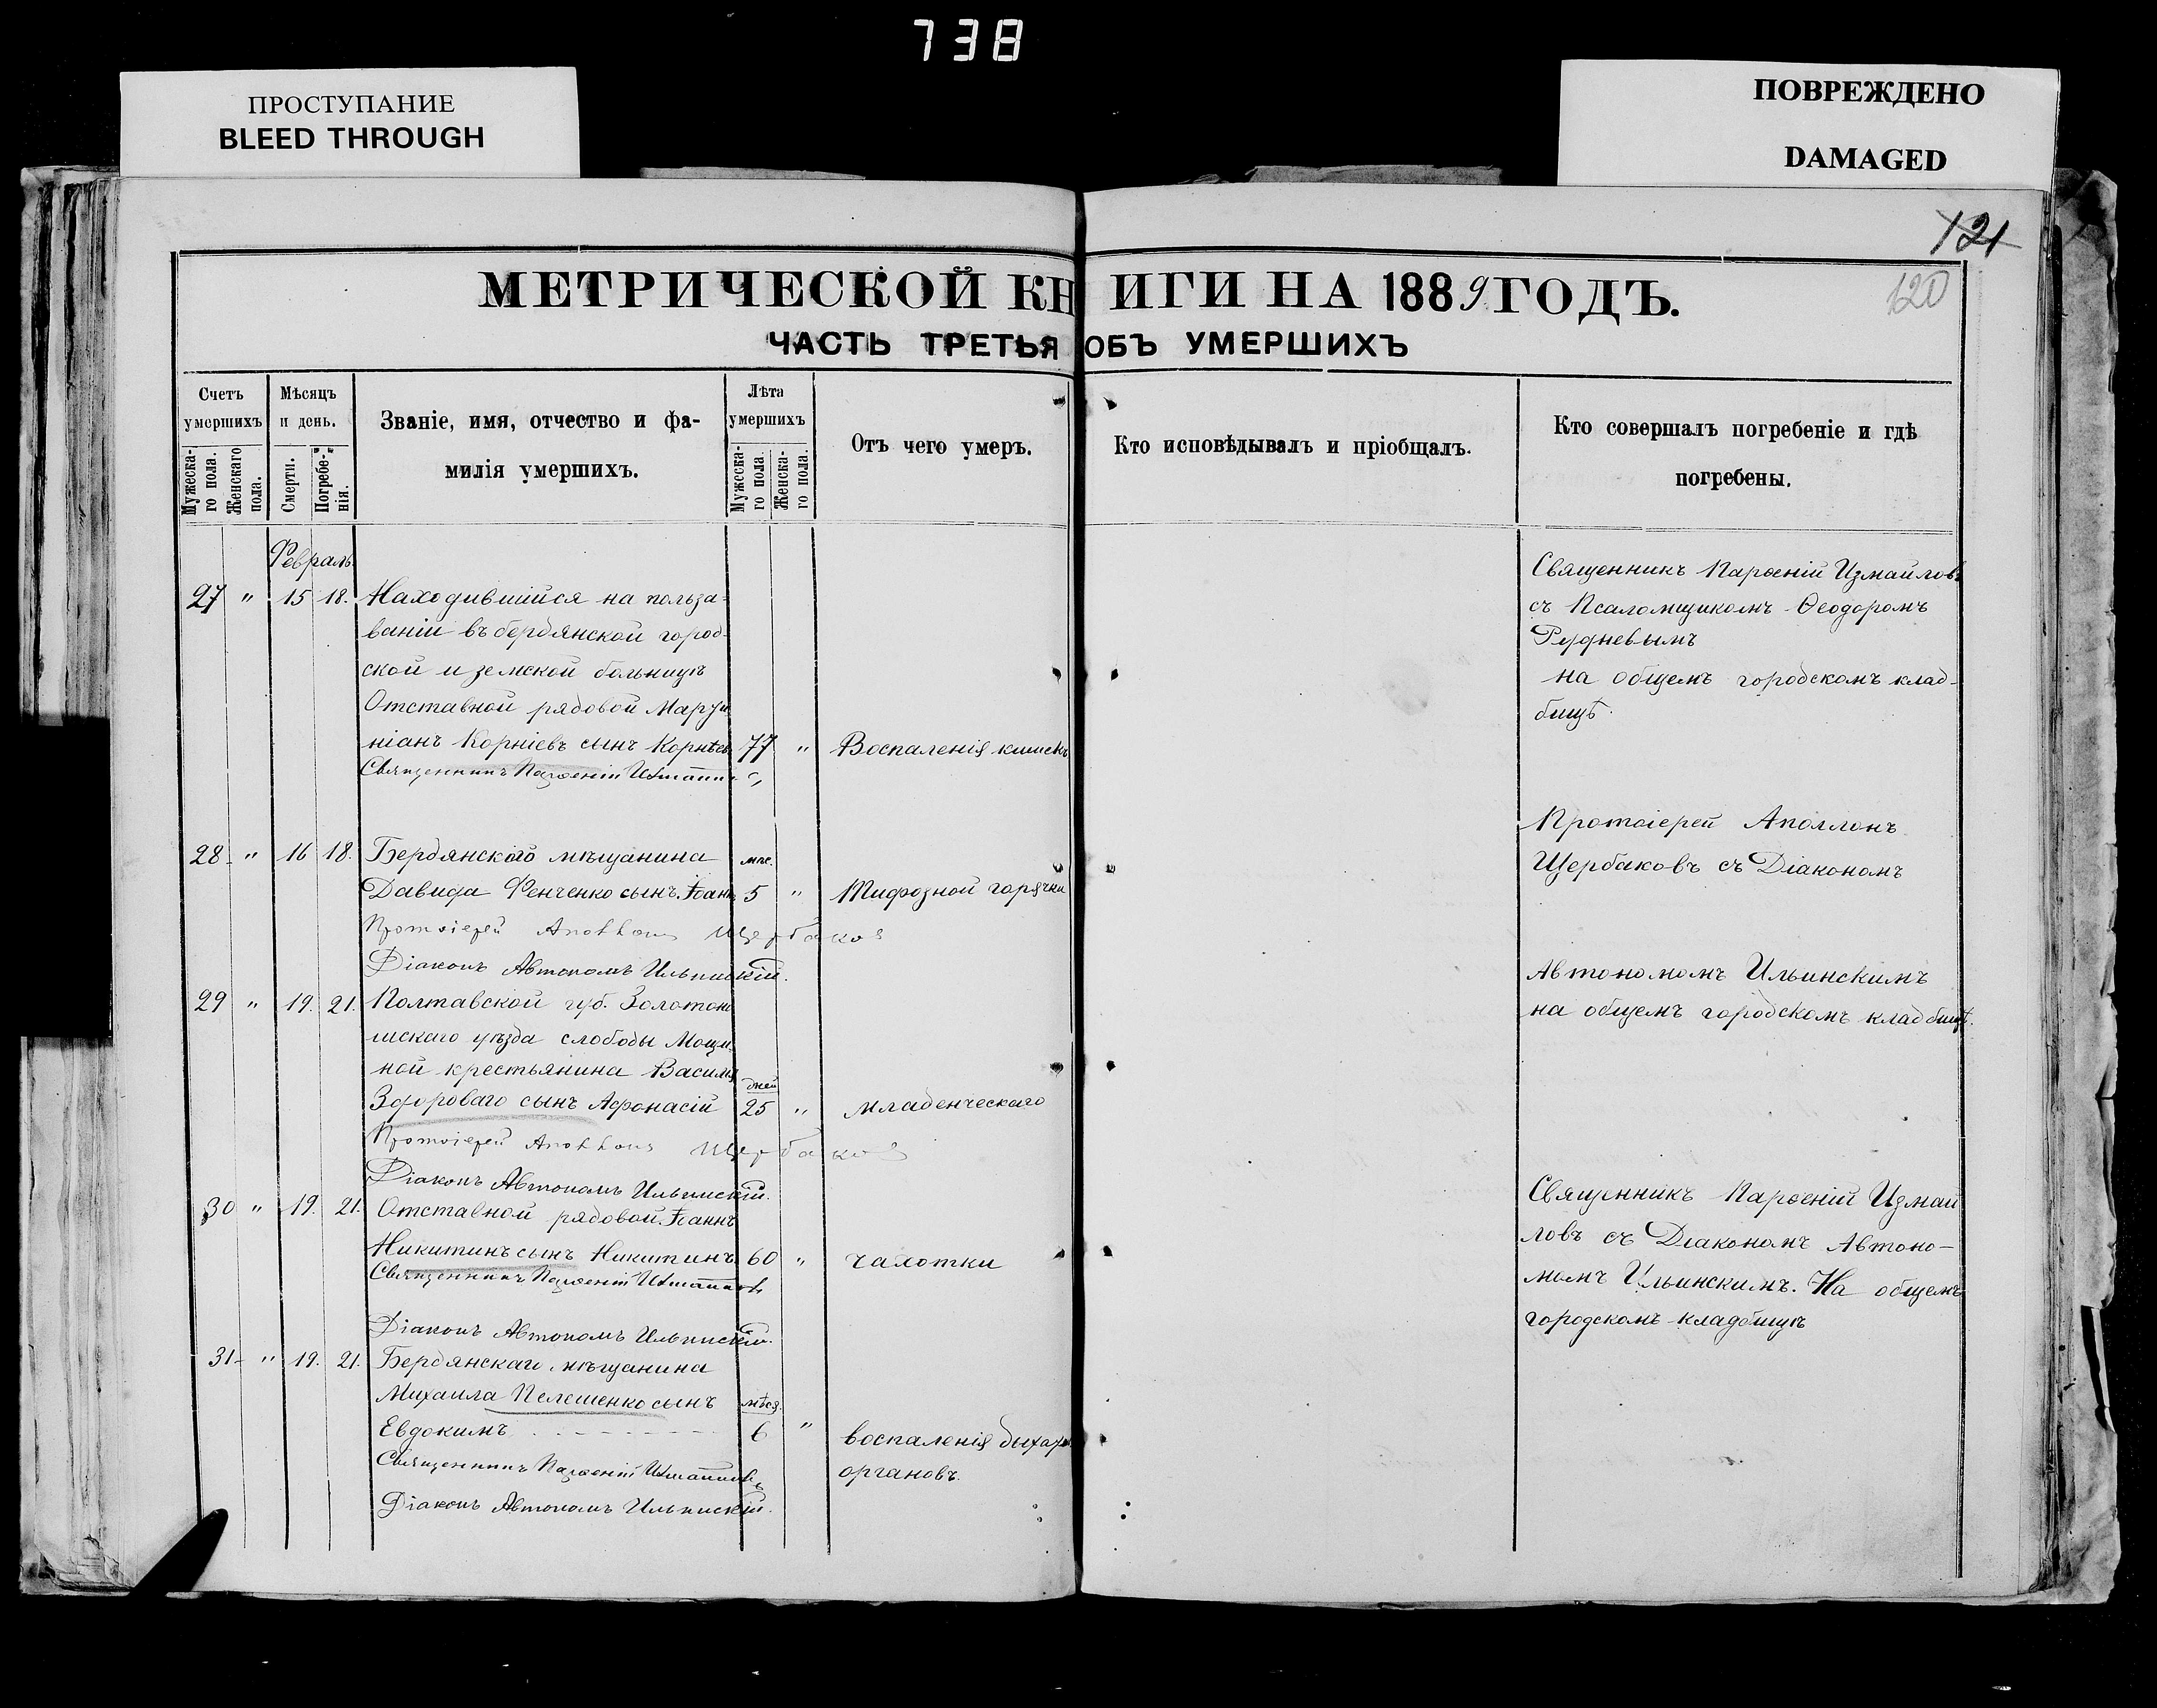 738
ПРОСТУПАНИЕ
BLEED THROUGH
ПОВРЕЖДЕНО
DAMAGED
121
120
МЕТРИЧЕСКОЙ КНИГИ НА 1889 ГОДЪ.
ЧАСТЬ ТРЕТЬЯ ОБЪ УМЕРШИХЪ
Счетъ умершихъ
Мужеска-го пола.
Женскаго пола.
Мѣсяцъ и день.
Смерти.
Погребе-нія.
Званіе, имя, отчество и фа-
милія умершихъ.
Лѣта умершихъ
Мужеска-го пола.
Женска-го пола.
Отъ чего умеръ.
Кто исповѣдывалъ и пріобщалъ.
Кто совершалъ погребеніе и гдѣ
погребены.
Февраль
27 " 15 18. Находившійся на польза-
ваніи въ бердянской город-
ской и земской больницѣ
Отставной рядовой
ніанъ Корніевъ сынъ 77 " Воспаленія кишекъ
Священникъ Парѳеній Измаиловъ
Священникъ Парѳеній Измайловъ
съ Псаломщикомъ Ѳеодоромъ
Рудневымъ
на общемъ городскомъ клад-
бищѣ.
28 " 16 18. Бердянского мѣщанина мѣс.
Давида Фенченко сынъ Іоаннъ 5 " Тифозной горячки
Протоіерей Аполлонъ Щербаковъ
Діаконъ Автономъ Ильинскій.
Протоіерей Аполлонъ
Щербаковъ съ Діакономъ
Автономомъ Ильинскимъ
на общемъ городскомъ кладбищѣ.
29 " 19. 21. Полтавской губ. Золотоно
шскаго уѣзда слободы
ной крестьянина Василія дней
Здороваго сынъ Афонасій 25 " Младенческаго
Протоіерей Аполлонъ Щербаковъ
Діаконъ Автономъ Ильинскій.
30 " 19. 21. Отставной рядовой Іоаннъ
Никитинъ сынъ Никитинъ 60 " чахотки
Священникъ Парѳеній Измаиловъ
Діаконъ Автономъ Ильинскій.
Священникъ Парѳеній Измаи
ловъ съ Діакономъ Автоно-
момъ Ильинскимъ. На общемъ
городскомъ кладбищѣ
31 " 19. 21. Бердянскаго мѣщанина
Михаила Пелешенко сынъ мѣся.
Евдокимъ 6 " воспаленія дыхат.
органовъ.
Священникъ Парѳеній Измаиловъ
Діаконъ Автономъ Ильинскій.